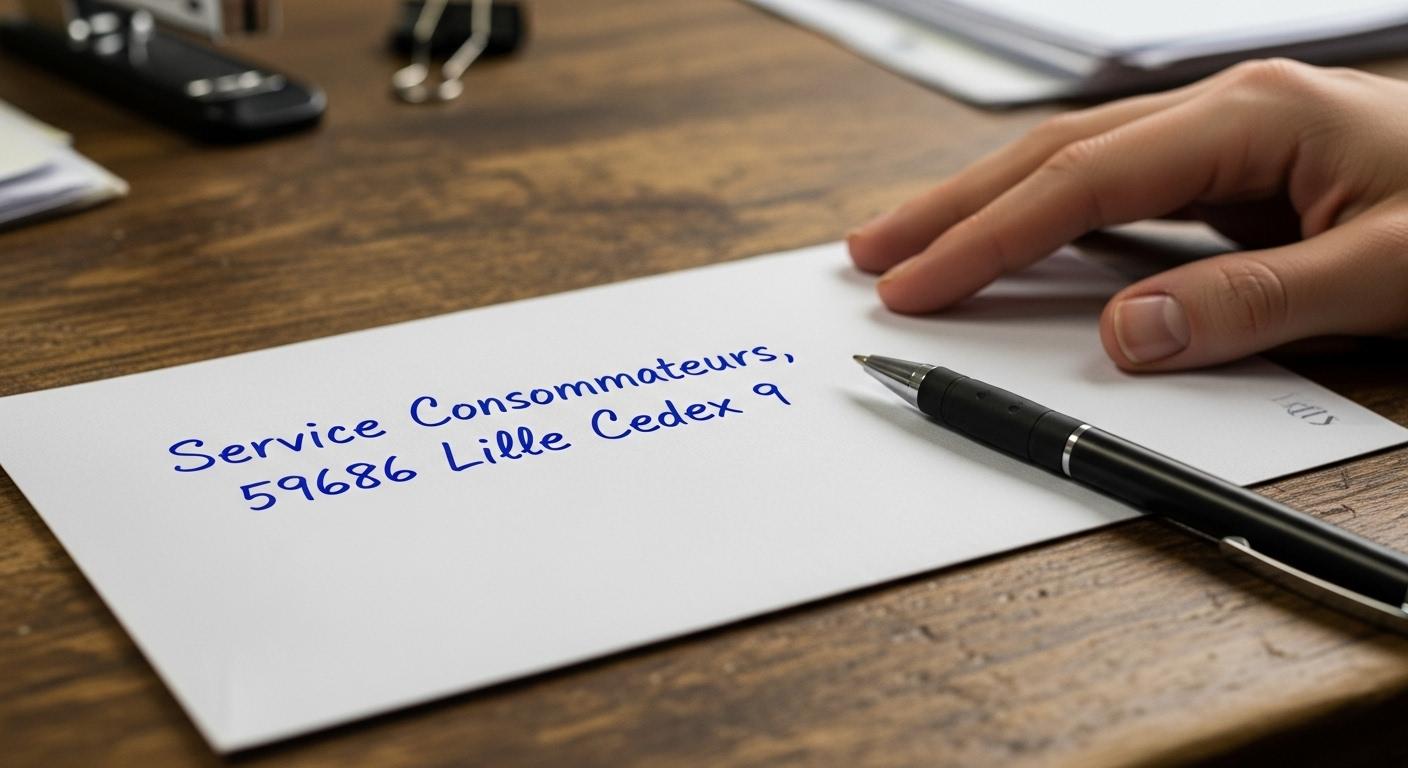 Service Consommateurs,
59686 Lille Cedex 9